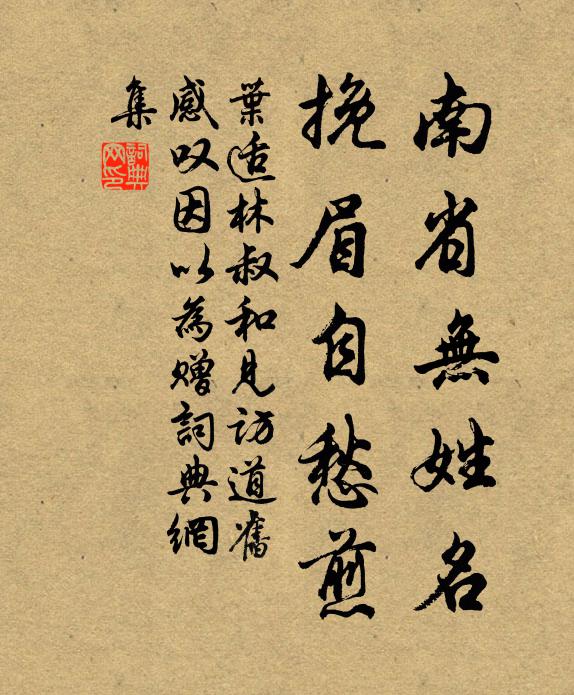 南省無姓名
挽眉自愁煎
葉适林叔和見訪道舊
感叹因以為贈詞典網
集
詞典
网印